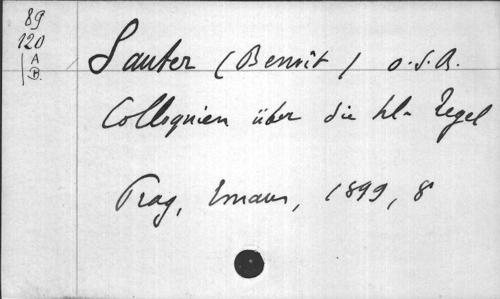 89
120
A
B.
Sauter (Benoît) o.S.B.
Colloquien über die hl. Regel
Prag, Emaus, 1899, 8°